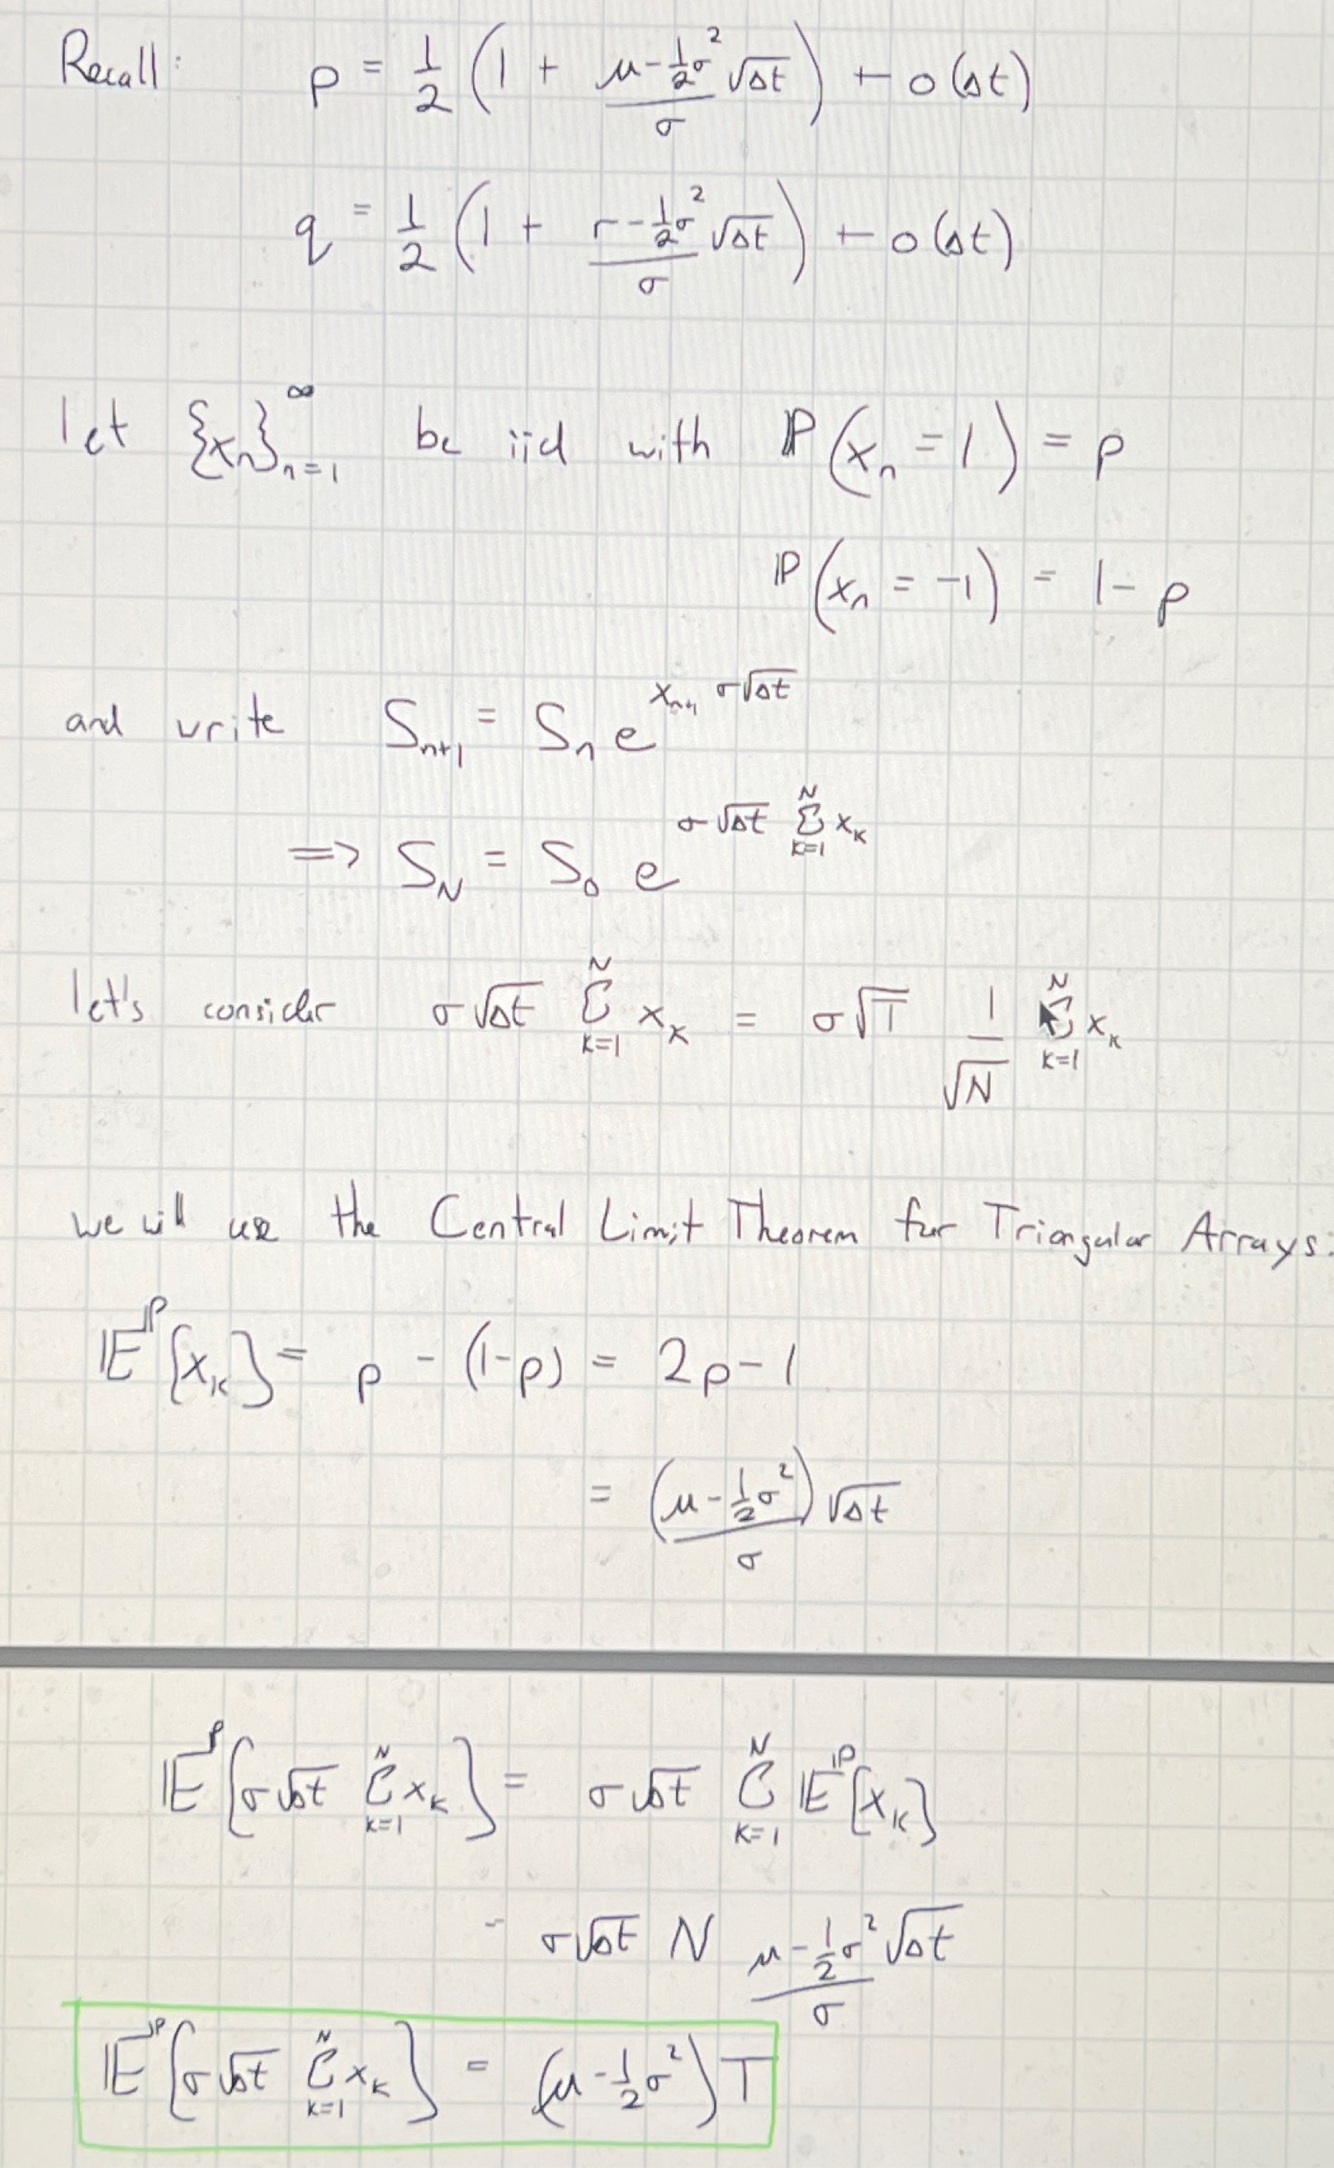 Recall: p = 1/2 (1 + (μ - 1/2 σ²)/σ √Δt) + o(Δt)
q = 1/2 (1 + (r - 1/2 σ²)/σ √Δt) + o(Δt)
let {xₙ}ₙ₌₁^∞ be iid with ℙ(xₙ = 1) = p
ℙ(xₙ = -1) = 1 - p
and write Sₙ₊₁ = Sₙ e^(xₙ₊₁ σ√Δt)
=> S_N = S₀ e^(σ√Δt Σ_{k=1}^N x_k)
let's consider σ√Δt Σ_{k=1}^N x_k = σ√T 1/√N Σ_{k=1}^N x_k
we will use the Central Limit Theorem for Triangular Arrays:
𝔼^ℙ[x_k] = p - (1-p) = 2p - 1
= (μ - 1/2 σ²)/σ √Δt
𝔼^ℙ[σ√Δt Σ_{k=1}^N x_k] = σ√Δt Σ_{k=1}^N 𝔼^ℙ[x_k]
= σ√Δt N (μ - 1/2 σ²)/σ √Δt
𝔼^ℙ[σ√Δt Σ_{k=1}^N x_k] = (μ - 1/2 σ²) T